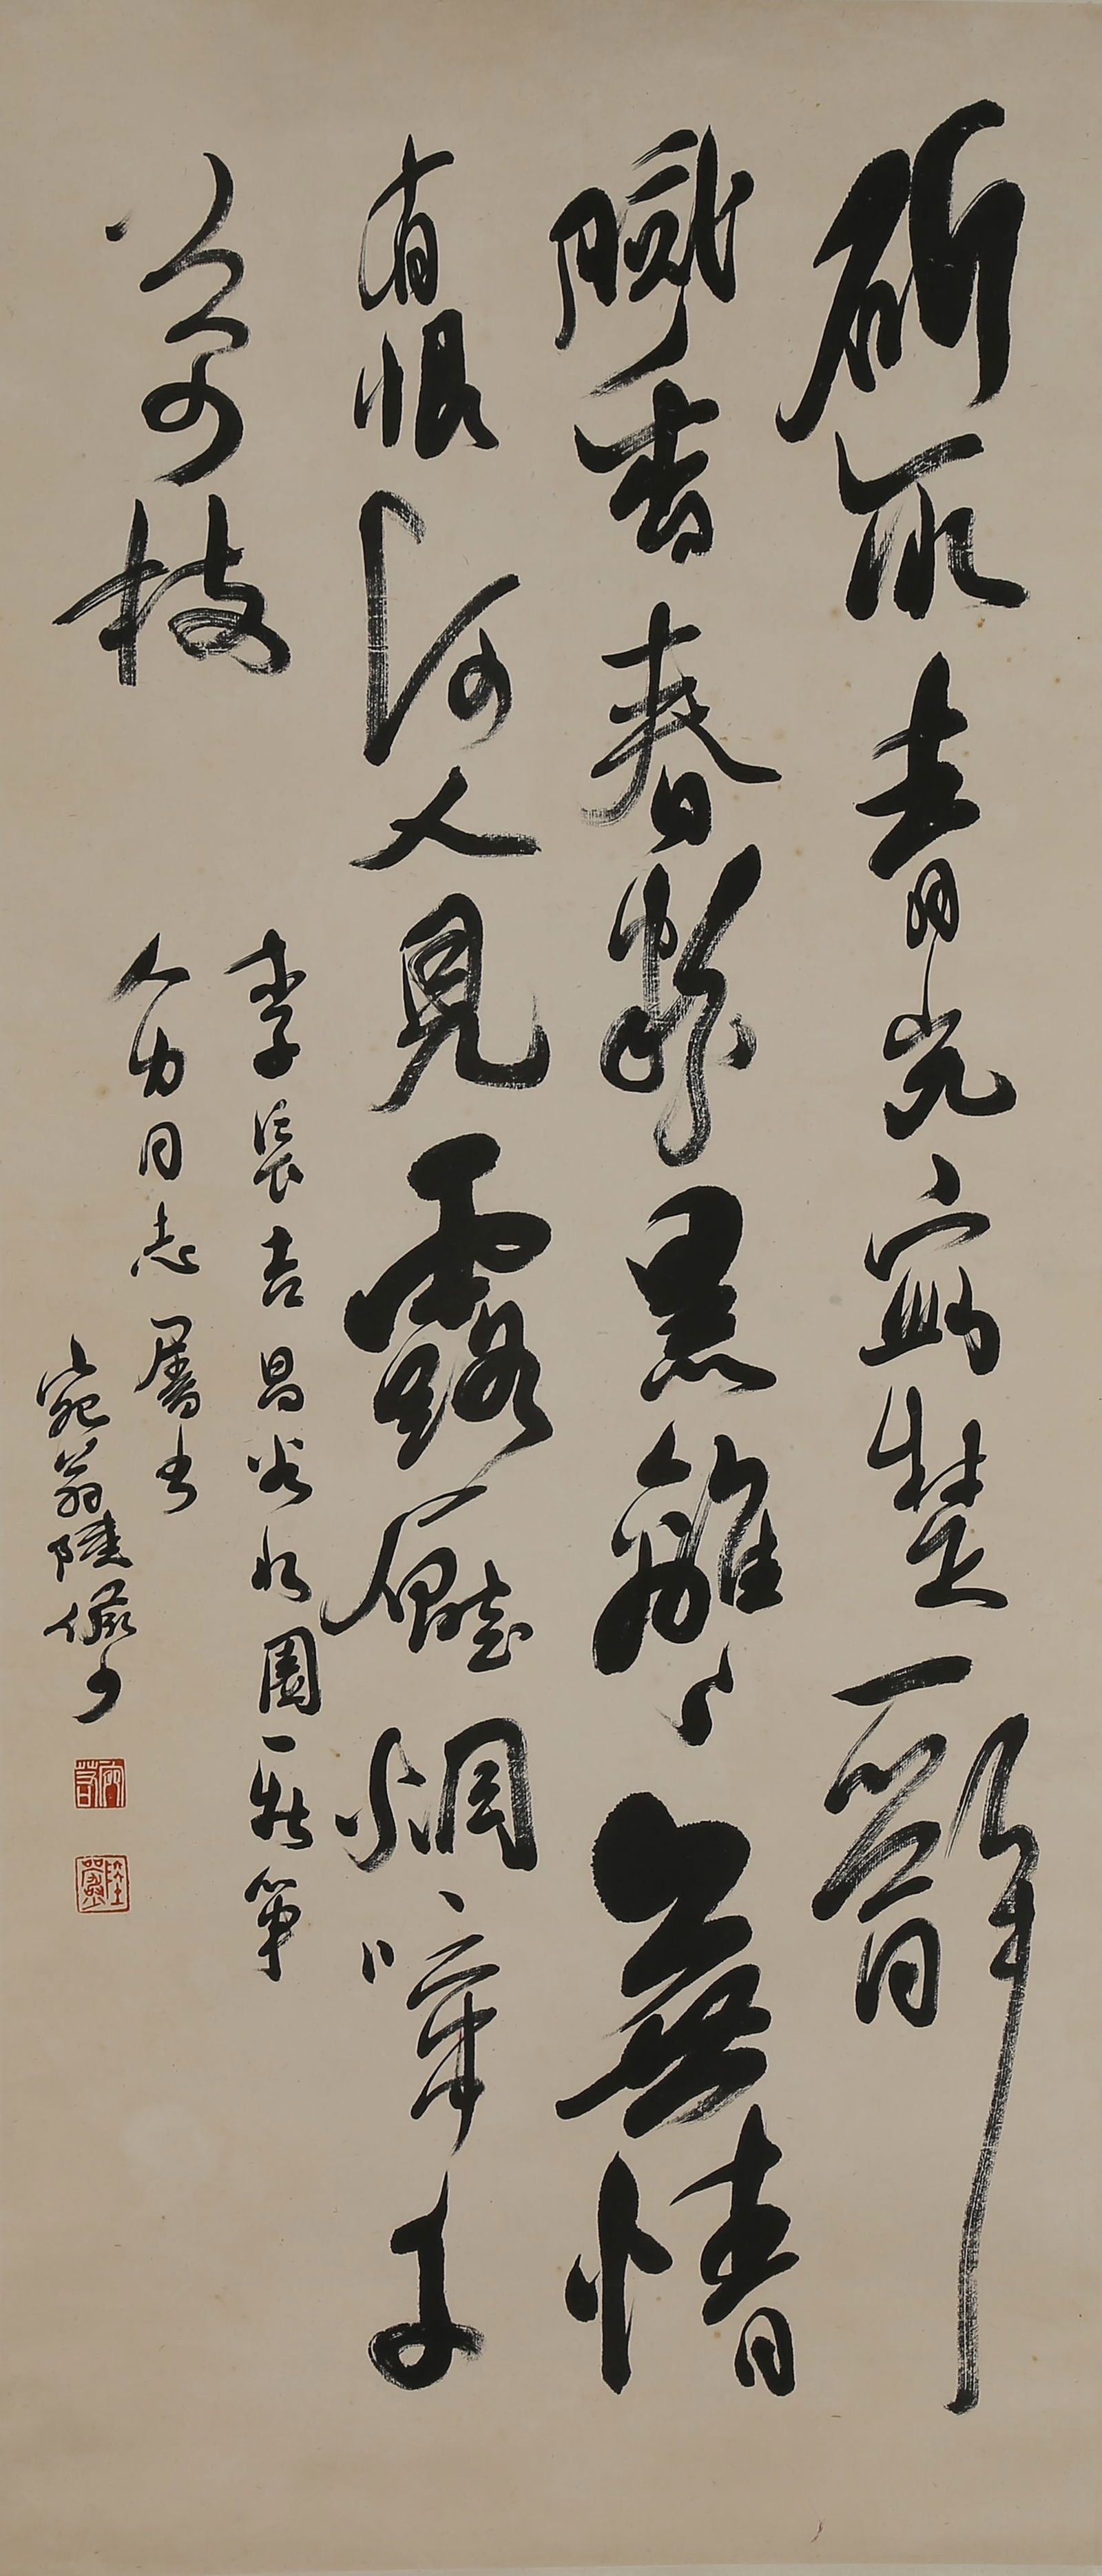 斫取青光寫楚辭
膩香春粉黑離〻無情
有恨何人見露壓烟啼千
萬枝
李長吉昌谷北園新筍
人力同志屬書
宛翁陸儼少
宛若
陸儼少